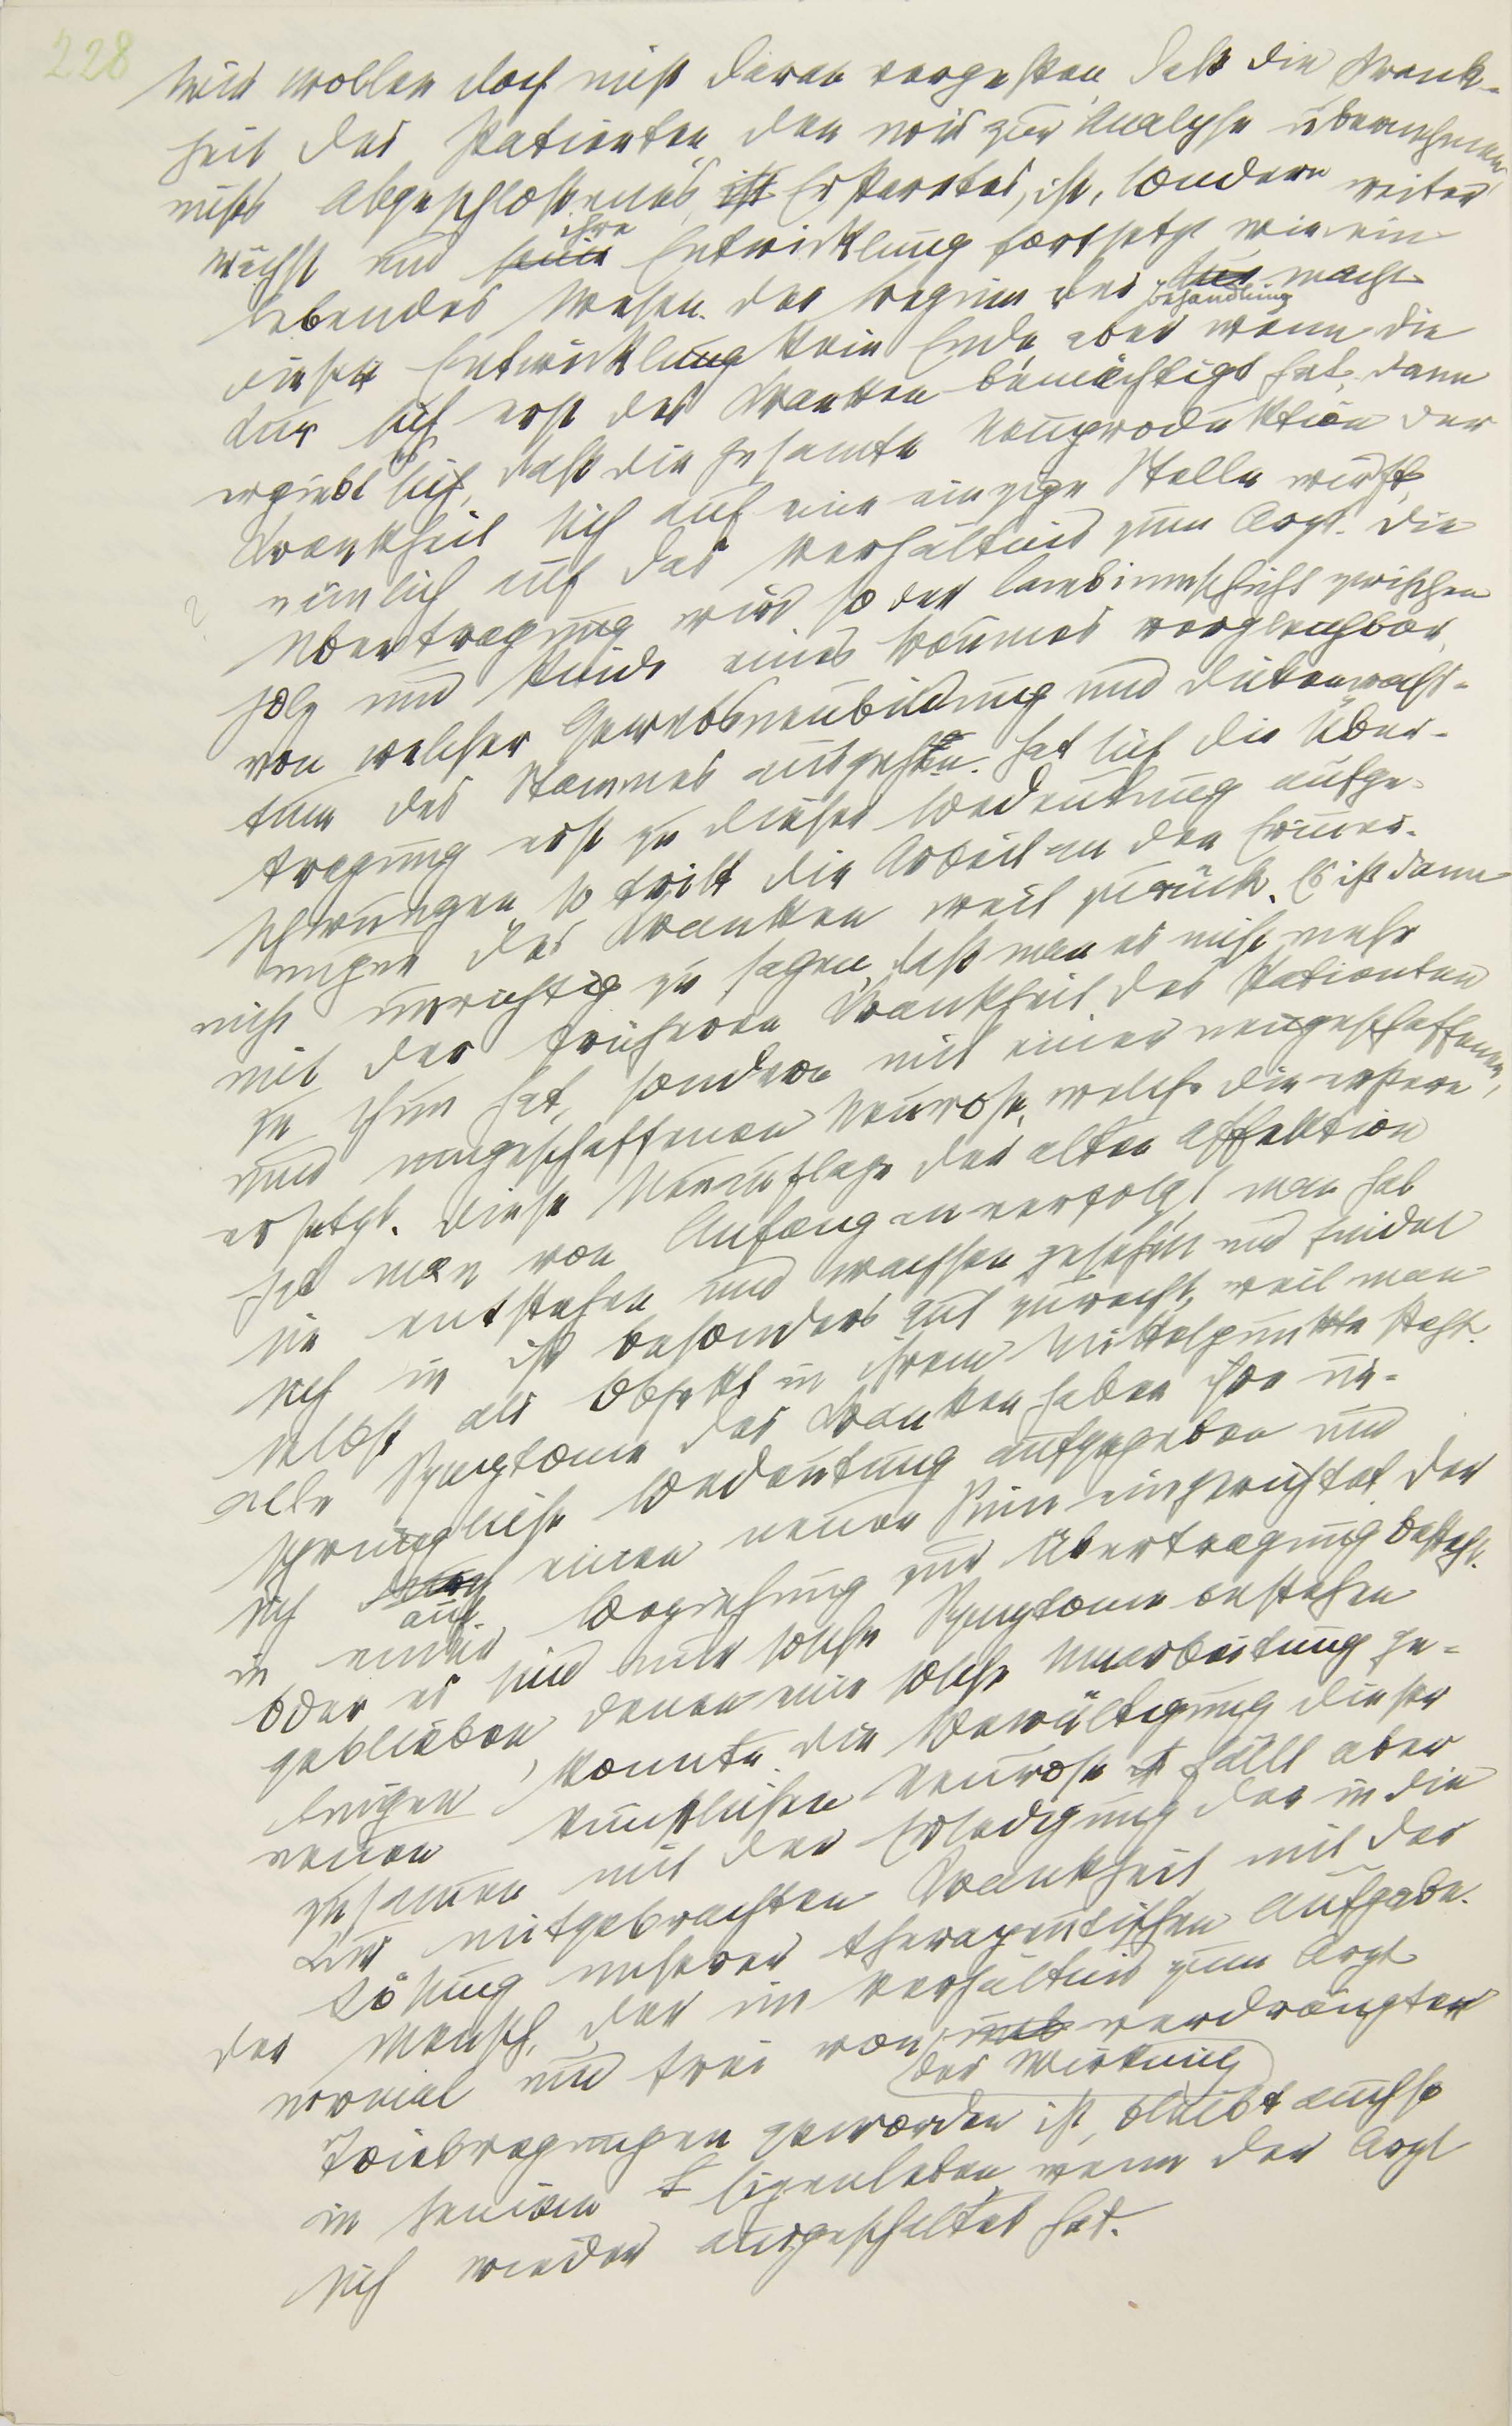 228
Wir wollen doch nicht daran vergessen, daß die Krank-
heit des Patienten, den wir zur Analyse übernehmen,
nichts Abgeschlossenes, ist Erstarrtes, ist, sondern weiter
wächst und seine ihre Entwicklung fortsetzt wie ein
lebendes Wesen. Der Beginn der Kur Behandlung macht
dieser Entwicklung kein Ende, aber wenn die
Kur sich erst des Kranken bemächtigt hat, dann
ergiebt sich, daß die gesamte Neuproduktion der
Krankheit sich auf eine einzige Stelle wirft,
nämlich auf das Verhältnis zum Arzt. Die
Übertragung wird so der Cambiumschicht zwischen
Holz und Rinde eines Baumes vergleichbar,
von welcher Gewebsneubildung und Dickenwachs-
tum des Stammes ausgehen. Hat sich die Über-
tragung erst zu dieser Bedeutung aufge-
schwungen, so tritt die Arbeit an den Erinner-
ungen des Kranken weit zurück. Es ist dann
nicht unrichtig zu sagen, daß man es nicht mehr
mit der früheren Krankheit des Patienten
zu thun hat, sondern mit einer neugeschaffenen,
und umgeschaffenen Neurose, welche die erstere
ersetzt. Diese Neuauflage der alten Affektion
hat man von Anfang an verfolgt, man hat
sie entstehen und wachsen gesehen und findet
sich in ihr besonders gut zurecht, weil man
selbst als Objekt in ihrem Mittelpunkte steht.
Alle Symptome des Kranken haben ihre ur-
sprüngliche Bedeutung aufgegeben und
sich auf einen neuen Sinn eingerichtet, der
in einer Beziehung zur Übertragung besteht.
Oder es sind nur solche Symptome bestehen
geblieben, denen eine solche Umarbeitung ge-
lingen konnte. Die Bewältigung dieser
neuen künstlichen Neurose fällt aber
zusammen mit der Erledigung der in die
Kur mitgebrachten Krankheit, mit der
Lösung unserer therapeutischen Aufgabe.
Der Mensch, der im Verhältnis zum Arzt
normal und frei von der Wirkung verdrängter
Triebregungen geworden ist, bleibt auch so
in seinem Eigenleben, wenn der Arzt
sich wieder ausgeschaltet hat.